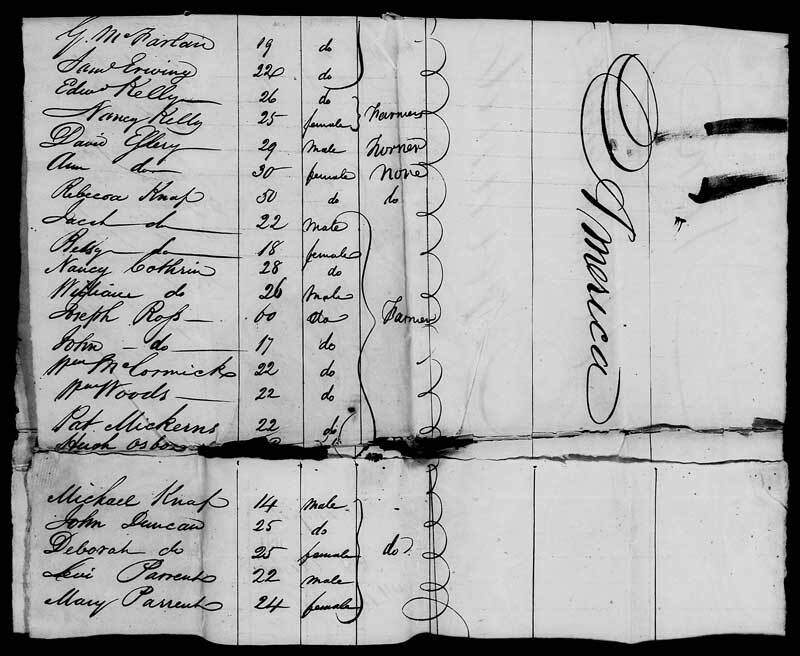 G. McFarlain 19 do
Saml Erwing 22 do
Edwd Kelly 26 do
Nancy Kelly 25 female Farmers
David Effery 29 male Farmer
Ann do 30 female None
Rebecca Knaf 50 do do
Jacob do 22 Male
Betsy do 18 female
Nancy Cothrin 28 do
William do 26 Male
Joseph Ross 60 do Farmer
John do 17 do
Wm McCormick 22 do
Wm Woods 22 do
Pat Mickerns 22 do
Hugh Osbon
Michael Knaf 14 male
John Duncan 25 do
Deborah do 25 female do
Levi Parrent 22 male
Mary Parrent 24 female
America